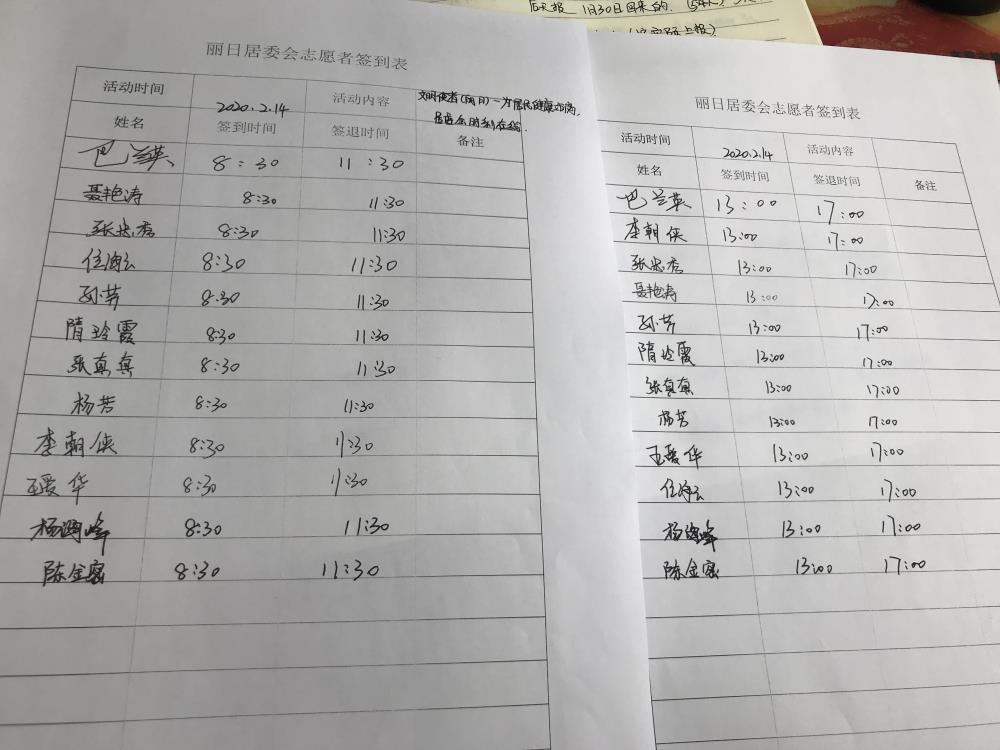 1月30日回来的
丽日居委会志愿者签到表
活动时间 2020.2.14 活动内容
姓名 签到时间 签退时间 备注
巴兰英 8:30 11:30
聂艳涛 8:30 11:30
张忠秀 8:30 11:30
任海云 8:30 11:30
孙芳 8:30 11:30
隋玲霞 8:30 11:30
张真真 8:30 11:30
杨芳 8:30 11:30
李朝侠 8:30 11:30
王爱华 8:30 11:30
杨海峰 8:30 11:30
陈金 8:30 11:30
丽日居委会志愿者签到表
活动时间 2020.2.14 活动内容
姓名 签到时间 签退时间 备注
巴兰英 13:00 17:00
李朝侠 13:00 17:00
张忠秀 13:00 17:00
聂艳涛 13:00 17:00
孙芳 13:00 17:00
隋玲霞 13:00 17:00
张真真 13:00 17:00
杨芳 13:00 17:00
王爱华 13:00 17:00
任海云 13:00 17:00
杨海峰 13:00 17:00
陈金 13:00 17:00